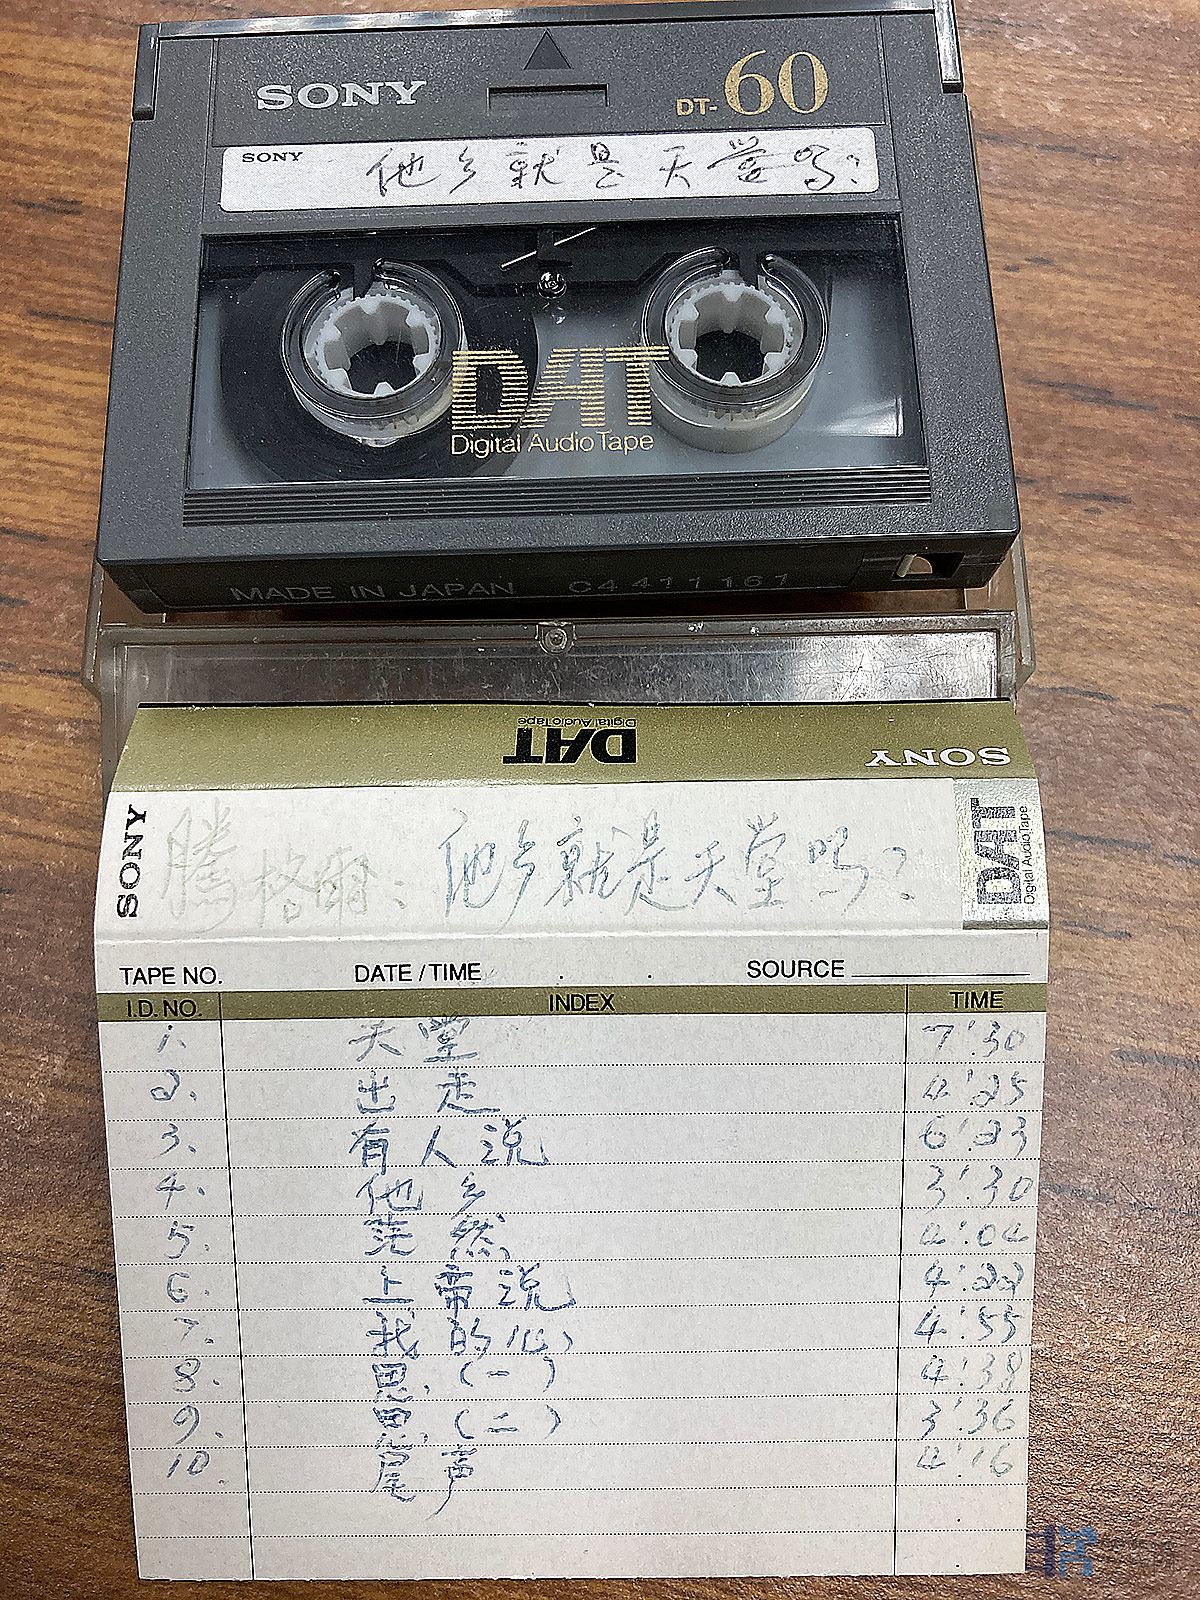 SONY
DT-60
SONY
他乡就是天堂吗?
DAT
Digital Audio Tape
MADE IN JAPAN C4 411 161
DAT
Digital Audio Tape
SONY
SONY
騰格爾:他乡就是天堂吗?
DAT
Digital Audio Tape
TAPE NO. DATE / TIME . . SOURCE
I.D. NO. INDEX TIME
1. 天堂 7'30
2. 出走 4'25
3. 有人说 6'23
4. 他乡 3'30
5. 茫然 4'04
6. 上帝说 4'22
7. 我的心 4'55
8. 思(一) 4'38
9. 思(二) 3'36
10. 尾声 4'16